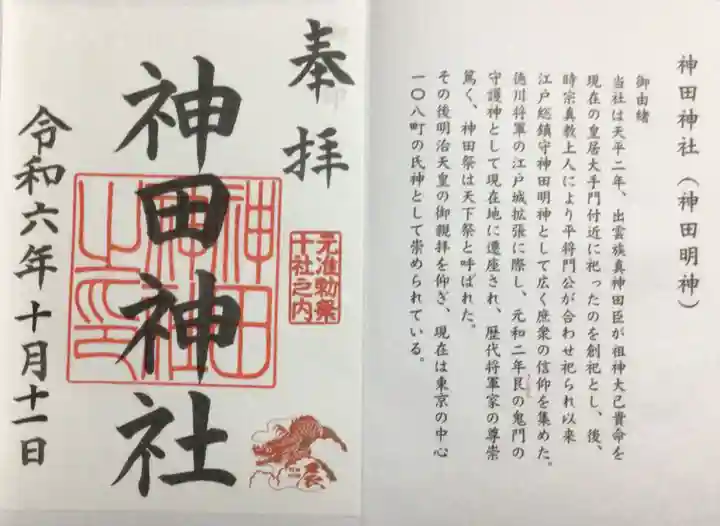 奉拝
神田神社
元准勅祭
十社之内
神田
神社
之印
辰
令和六年十月十一日
神田神社(神田明神)
御由緒
当社は天平二年、出雲族真神田臣が祖神大己貴命を
現在の皇居大手門付近に祀ったのを創祀とし、後、
時宗真教上人により平将門公が合わせ祀られ以来
江戸総鎮守神田明神として広く庶衆の信仰を集めた。
徳川将軍の江戸城拡張に際し、元和二年艮の鬼門の
守護神として現在地に遷座され、歴代将軍家の尊崇
篤く、神田祭は天下祭と呼ばれた。
その後明治天皇の御親拝を仰ぎ、現在は東京の中心
一〇八町の氏神として崇められている。